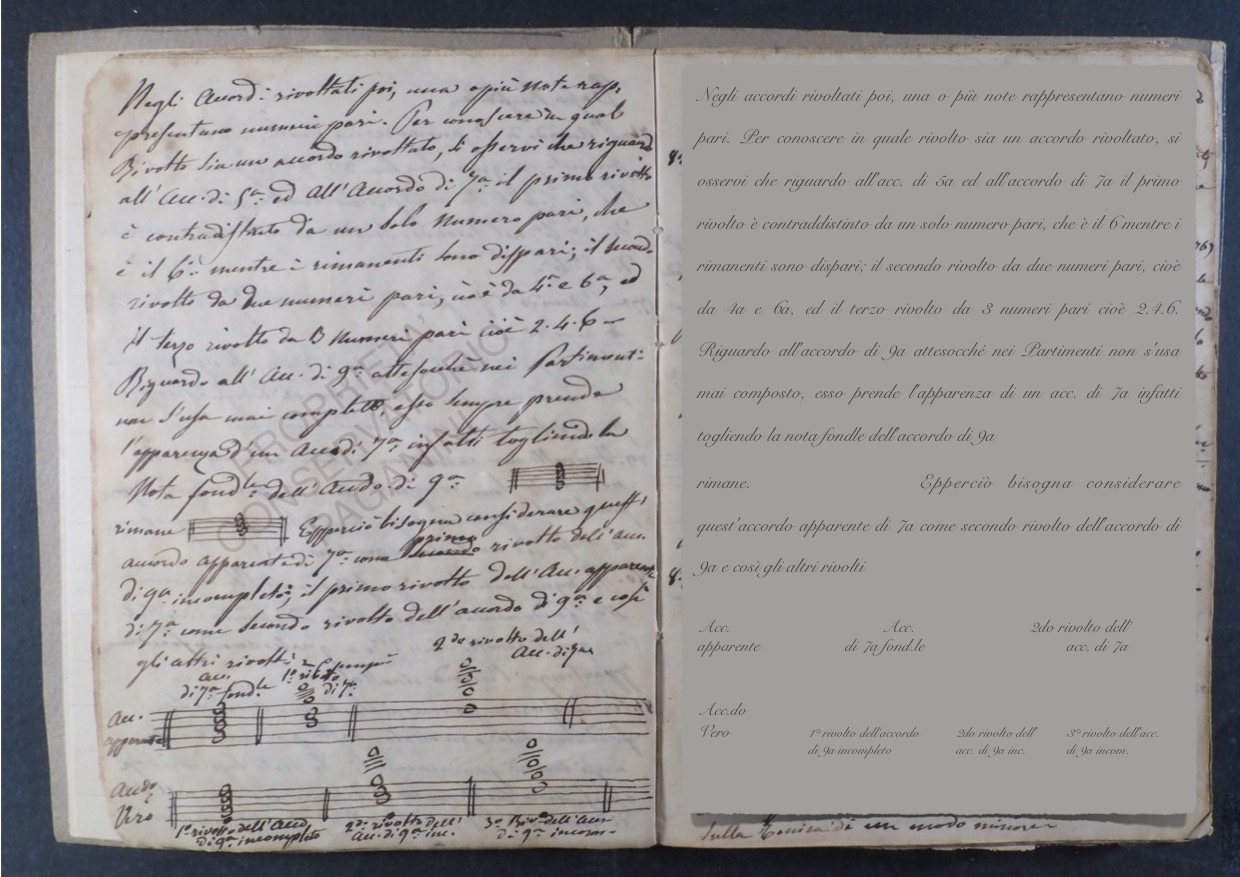 Negli Accordi rivoltati poi, una o più note rap,
presentano numeri pari. Per conoscere in qual
Rivolto sia un accordo rivoltato, si osservi che riguardo
all'Acc. di 5a. ed all'Accordo di 7a. il primo rivolto
è contradistinto da un solo numero pari, che
è il 6.o mentre i rimanenti sono dispari; il secondo
rivolto da due numeri pari, cioè da 4a. e 6a, ed
il terzo rivolto da 3 Numeri pari cioè 2.4.6 -
Riguardo all'Acc. di 9a. attesochè nei Partimenti
non s'usa mai completo, esso sempre prende
l'apparenza d'un Acc. di 7a. infatti togliendo la
Nota fond.le dell'Accdo. di 9a.
rimane Epperciò bisogna considerare quest'
accordo apparente di 7a. come secondo primo rivolto dell'acc.
di 9a incompleto; il primo rivolto dell'Acc. apparente
di 7a. come secondo rivolto dell'accordo di 9a. e così
gli altri rivolti
2do rivolto dell'
Acc. di 7a
acc.
di 7a fond.le
1o rivolto
di 7a.
Acc.
apparente
Accdo
Vero
1o rivolto dell'Accd
di 9a incompleto
2do. rivolto dell'
Acc. di 9a inc.
3o Rivo dell'Acc
di 9a. incom.
Negli accordi rivoltati poi, una o più note rappresentano numeri
pari. Per conoscere in quale rivolto sia un accordo rivoltato, si
osservi che riguardo all'acc. di 5a ed all'accordo di 7a il primo
rivolto è contraddistinto da un solo numero pari, che è il 6 mentre i
rimanenti sono dispari; il secondo rivolto da due numeri pari, cioè
da 4a e 6a, ed il terzo rivolto da 3 numeri pari cioè 2.4.6.
Riguardo all'accordo di 9a attesocché nei Partimenti non s'usa
mai composto, esso prende l'apparenza di un acc. di 7a infatti
togliendo la nota fondle dell'accordo di 9a
rimane. Epperciò bisogna considerare
quest'accordo apparente di 7a come secondo rivolto dell'accordo di
9a e così gli altri rivolti
Acc. Acc. 2do rivolto dell'
apparente di 7a fond.le acc. di 7a
Acc.do
Vero 1° rivolto dell'accordo 2do rivolto dell' 3° rivolto dell'acc.
di 9a incompleto acc. di 9a inc. di 9a incom.
Sulla Tonica di un modo minore
PROPRIETA'
CONSERVATORIO
PAGANINI